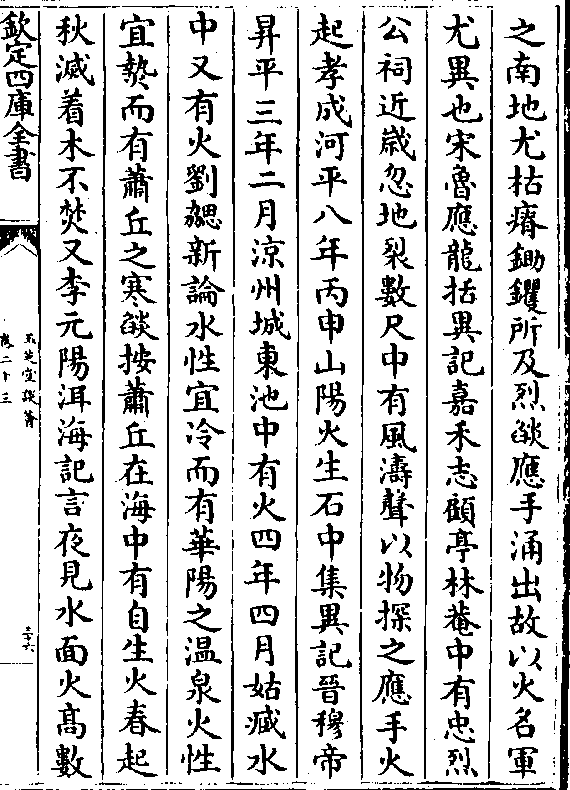 之南地尤枯瘠鋤钁所及烈燄應手涌出故以火名軍
尤異也宋魯應龍括異記嘉禾志顧亭林菴中有忠烈
公祠近嵗忽地裂數尺中有風濤聲以物探之應手火
起孝成河平八年丙申山陽火生石中集異記晉穆帝
昇平三年二月涼州城東池中有火四年四月姑臧水
中又有火劉勰新論水性宜冷而有華陽之温泉火性
宜𤍠而有蕭丘之寒燄按蕭丘在海中有自生火春起
秋滅着木不焚又李元陽洱海記言夜見水面火髙數
欽定四庫全書
玉芝堂談薈
卷二十三
三六